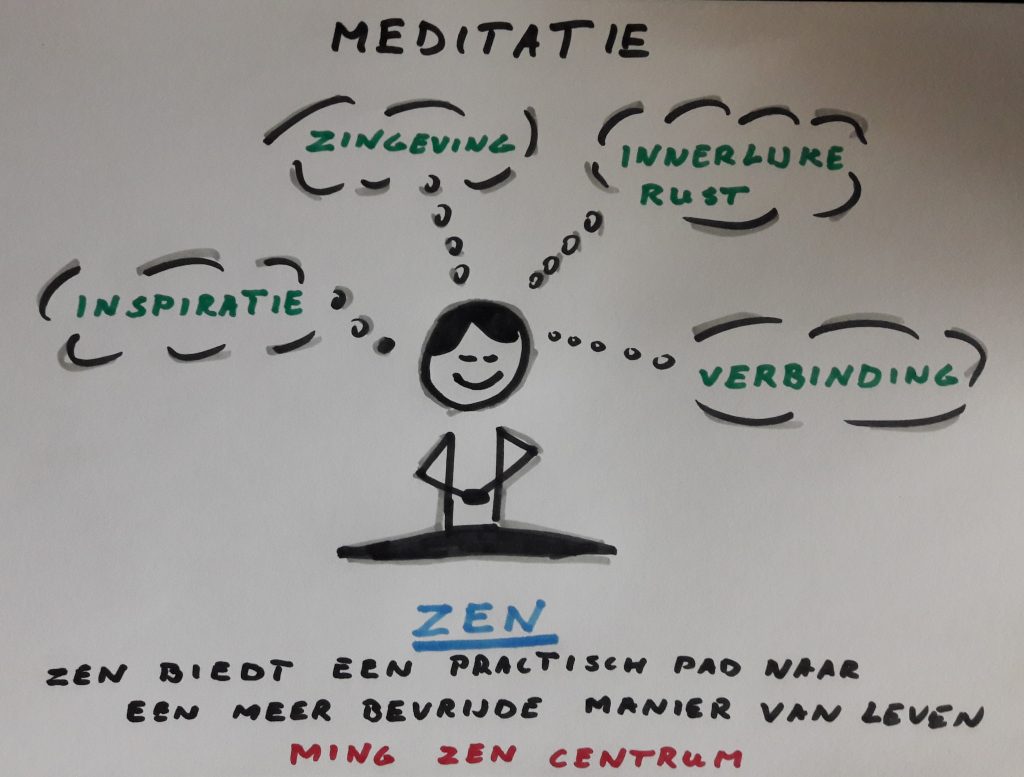 MEDITATIE
ZINGEVING
INNERLIJKE
RUST
INSPIRATIE
VERBINDING
ZEN
ZEN BIEDT EEN PRACTISCH PAD NAAR
EEN MEER BEVRIJDE MANIER VAN LEVEN
MING ZEN CENTRUM